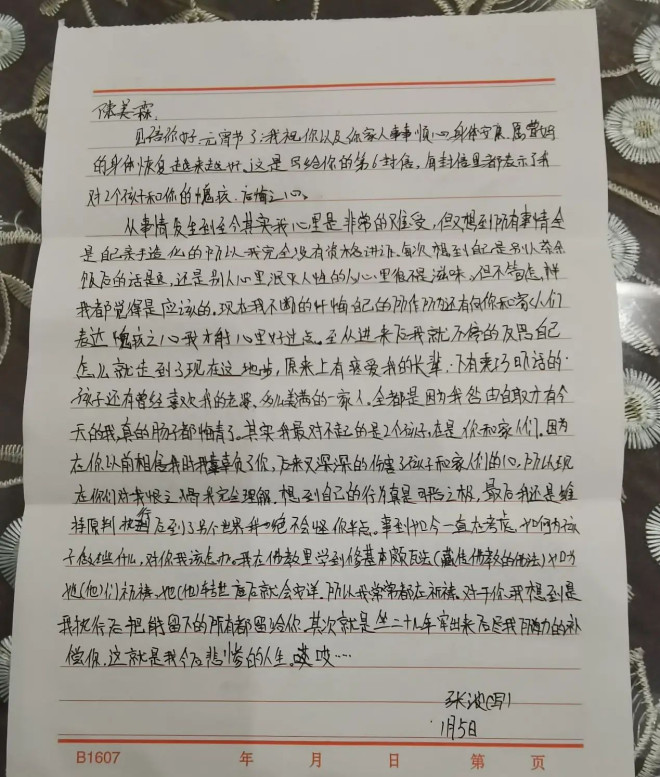 陈美霖:
见信你好,元宵节了,我祝你以及你家人事事顺心身体安康.愿曹妈
的身体恢复越来越好.这是写给你的第6封信,每封信里都表示了我
对2个孩子和你的愧疚.后悔之心。
从事情发生到至今其实我心里是非常的难受,但又想到所有事情全
是自己亲手造化的所以我完全没有资格讲诉.每次想到自己是别人茶余
饭后的话题,还是别人心里泯灭人性的人心里很不是滋味,但不管怎样
我都觉得是应该的.现在我不断的忏悔自己的所作所为还有向你和家人们
表达愧疚之心我才能心里好过点.至从进来后我就不停的反思自己
怎么就走到了现在这地步,原来上有疼爱我的长辈.下有乖巧听话的
孩子还有曾经喜欢我的老婆、多么美满的一家人.全都是因为我咎由自取才有今
天的我,真的肠子都悔青了.其实我最对不起的是2个孩子.在是你和家人们.因为
在你以前相信我时我辜负了你,后来又深深的伤害了孩子和家人们的心,所以现
在你们对我恨之入骨我完全理解.想到自己的行为真是可耻之极,最后我还是维
持原判执行后到了另个世界我绝不会怪你半点.事到如今一直在考虑,如何为孩
子做些什么,对你我该怎办.我在佛教里学到修慧本愿瓦法(藏传佛教的佛法)如为
她(他)们祈祷.她(他)转世庭后就会安详.所以我常常都在祈祷.对于你我想到是
我执行后把能留下的所有都留给你.其次就是坐二十几年牢出来后尽我所能的补
偿你.这就是我今后悲惨的人生.哎哎……
张波(写)
1月5日
B1607 年 月 日 第 页